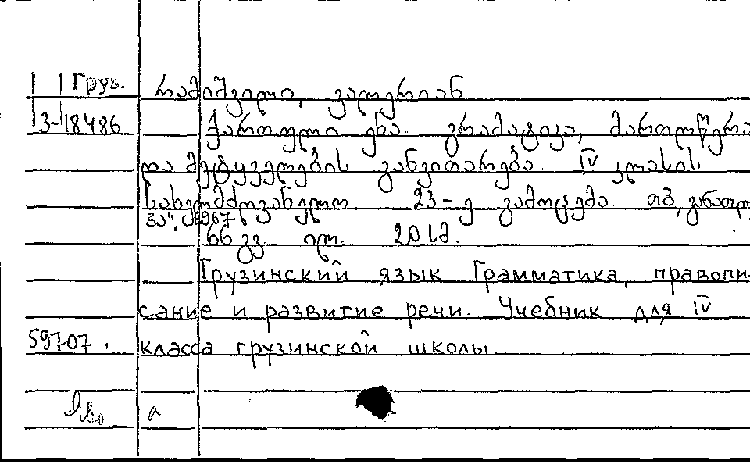 Груз. რამიშვილი, ვალერიან
3-18486 ქართული ენა. გრამატიკა, მართლწერა
და მეტყველების განვითარება. IV კლასის
სახელმძღვანელო. 23-ე გამოცემა. თბ, „განათლ
ბა", 1967.
66 გვ. ილ. 20 ს/მ.
Грузинский язык Грамматика, правопи-
сание и развитие речи. Учебник для IV
59707. класса грузинской школы
а